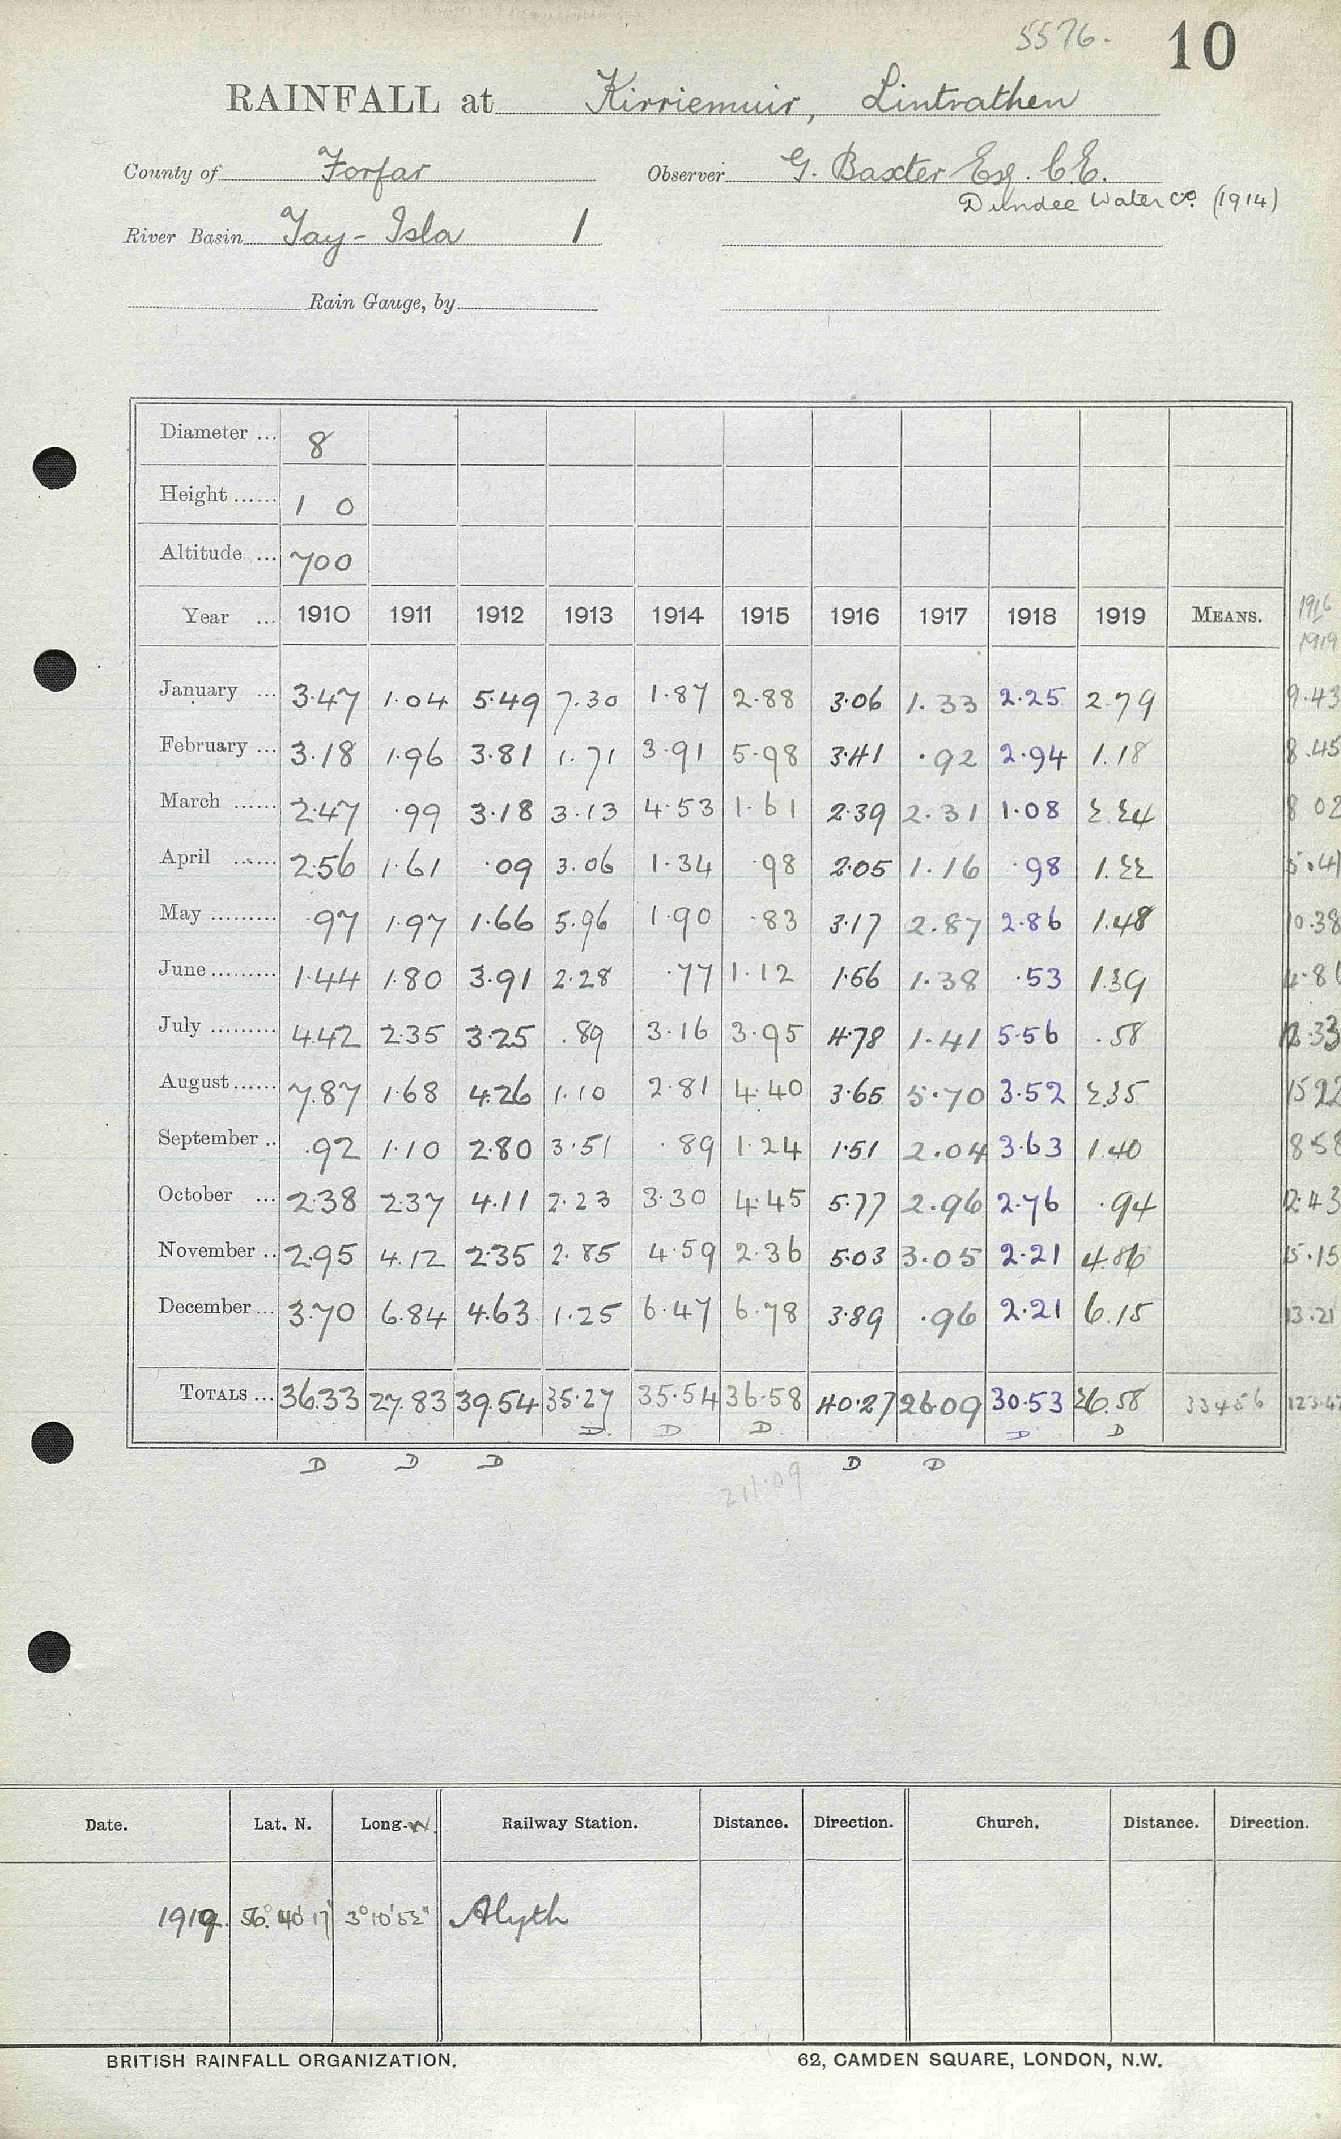 5576. 10
RAINFALL at Kirriemuir, Lintrathen
County of Forfar Observer G. Baxter Esq. C.E.
Dundee Water Co. (1914)
River Basin Tay - Isla 1
Rain Gauge, by
Diameter ... 8
Height ...... 1 0
Altitude ... 700
Year ... 1910 1911 1912 1913 1914 1915 1916 1917 1918 1919 MEANS. 1916 1919
January ... 3.47 1.04 5.49 7.30 1.87 2.88 3.06 1.33 2.25 2.79 9.43
February ... 3.18 1.96 3.81 1.71 3.91 5.98 3.41 .92 2.94 1.18 8.45
March ...... 2.47 .99 3.18 3.13 4.53 1.61 2.39 2.31 1.08 2.24 8 02
April ...... 2.56 1.61 .09 3.06 1.34 .98 2.05 1.16 .98 1.22 5.41
May ......... .97 1.97 1.66 5.96 1.90 .83 3.17 2.87 2.86 1.48 10.38
June ......... 1.44 1.80 3.91 2.28 .77 1.12 1.56 1.38 .53 1.39 4.86
July ......... 4.42 2.35 3.25 .89 3.16 3.95 4.78 1.41 5.56 .58 12.33
August ...... 7.87 1.68 4.26 1.10 2.81 4.40 3.65 5.70 3.52 2.35 15 22
September .. .92 1.10 2.80 3.51 .89 1.24 1.51 2.04 3.63 1.40 8.58
October ... 2.38 2.37 4.11 2.23 3.30 4.45 5.77 2.96 2.76 .94 12.43
November .. 2.95 4.12 2.35 2.85 4.59 2.36 5.03 3.05 2.21 4.86 15.15
December ... 3.70 6.84 4.63 1.25 6.47 6.78 3.89 .96 2.21 6.15 13.21
TOTALS ... 36.33 27.83 39.54 35.27 35.54 36.58 40.27 26.09 30.53 26.58 334.56 123.47
D D D D D
D D D D D
211.09
Date. Lat. N. Long. W. Railway Station. Distance. Direction. Church. Distance. Direction.
1919. 56° 40' 17" 3° 10' 52" Alyth
BRITISH RAINFALL ORGANIZATION. 62, CAMDEN SQUARE, LONDON, N.W.